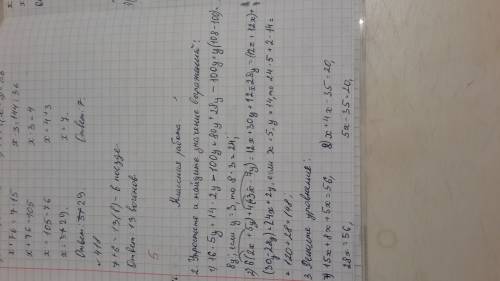 x + 76 = 7 · 15
x + 76 = 105
x = 105 - 76
x = 29
Ответ: 29.
x · 3 = 144 : 36
x : 3 = 4
x = 4 · 3
x = 7.
Ответ 7.
N 418
7 + 6 = 13 (в) - в поезде.
Ответ: 13 вагонов.
5
Классная работа
2. Упростите и найдите значение выражений:
1) 16 · 5y + 14 · 2y - 100y = 80y + 28y - 100y = y(108-100)=
8y; если y = 3, то 8 · 3 = 24;
2) 6(2x + 5y) + 4(3x - 7y) = 12x + 30y + 12x 28y = (12x + 12x) +
(30y 28y) = 24x + 2y, если x = 5, y = 14, то 24 · 5 + 2 · 14 =
= 120 + 28 = 148;
3. Решите уравнения:
7) 15x + 8x + 5x = 56,
28x = 56,
8) x + 4x - 35 = 20,
5x - 35 = 20,